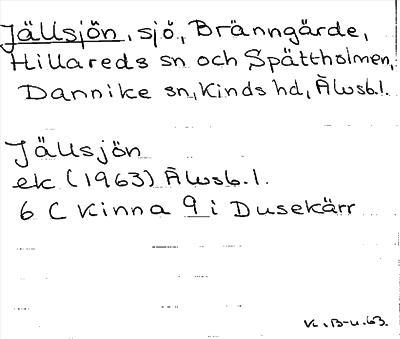 Jällsjön, sjö, Bränngärde,
Hillareds sn och Spättholmen,
Dannike sn, Kinds hd, Älvsb.l.
Jällsjön
ek (1963) Älvsb.l.
6 C Kinna 9 i Dusekärr
K. B-u. 63.